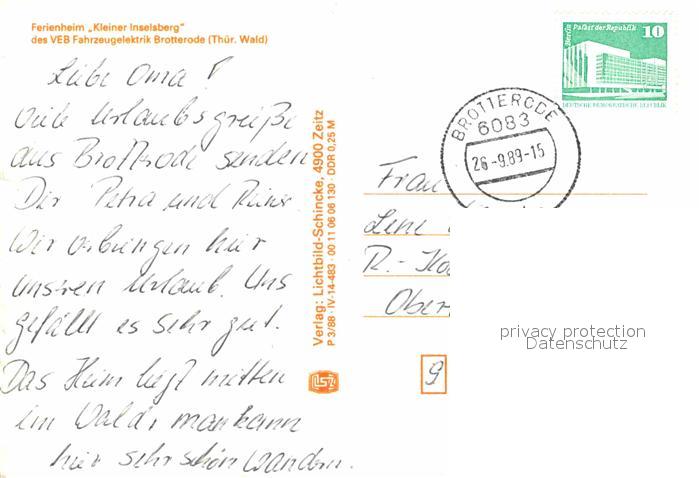 Ferienheim „Kleiner Inselsberg"
des VEB Fahrzeugelektrik Brotterode (Thür. Wald)
Liebe Oma!
Viele Urlaubsgrüße
aus Brotterode senden
Dir Petra und
Wir verbringen hier
unseren Urlaub. Uns
gefällt es sehr gut.
Das Heim liegt mitten
im Wald, man kann
hier sehr schön wandern.
Verlag: Lichtbild-Schincke, 4900 Zeitz
P 3/88 · IV-14-483 · 00 11 06 06 130 · DDR 0,25 M
Berlin Palast der Republik
10
DEUTSCHE DEMOKRATISCHE REPUBLIK
BROTTERODE
6083
26-9.89-15
Frau
Lene
R.-
Ober
9
privacy protection
Datenschutz